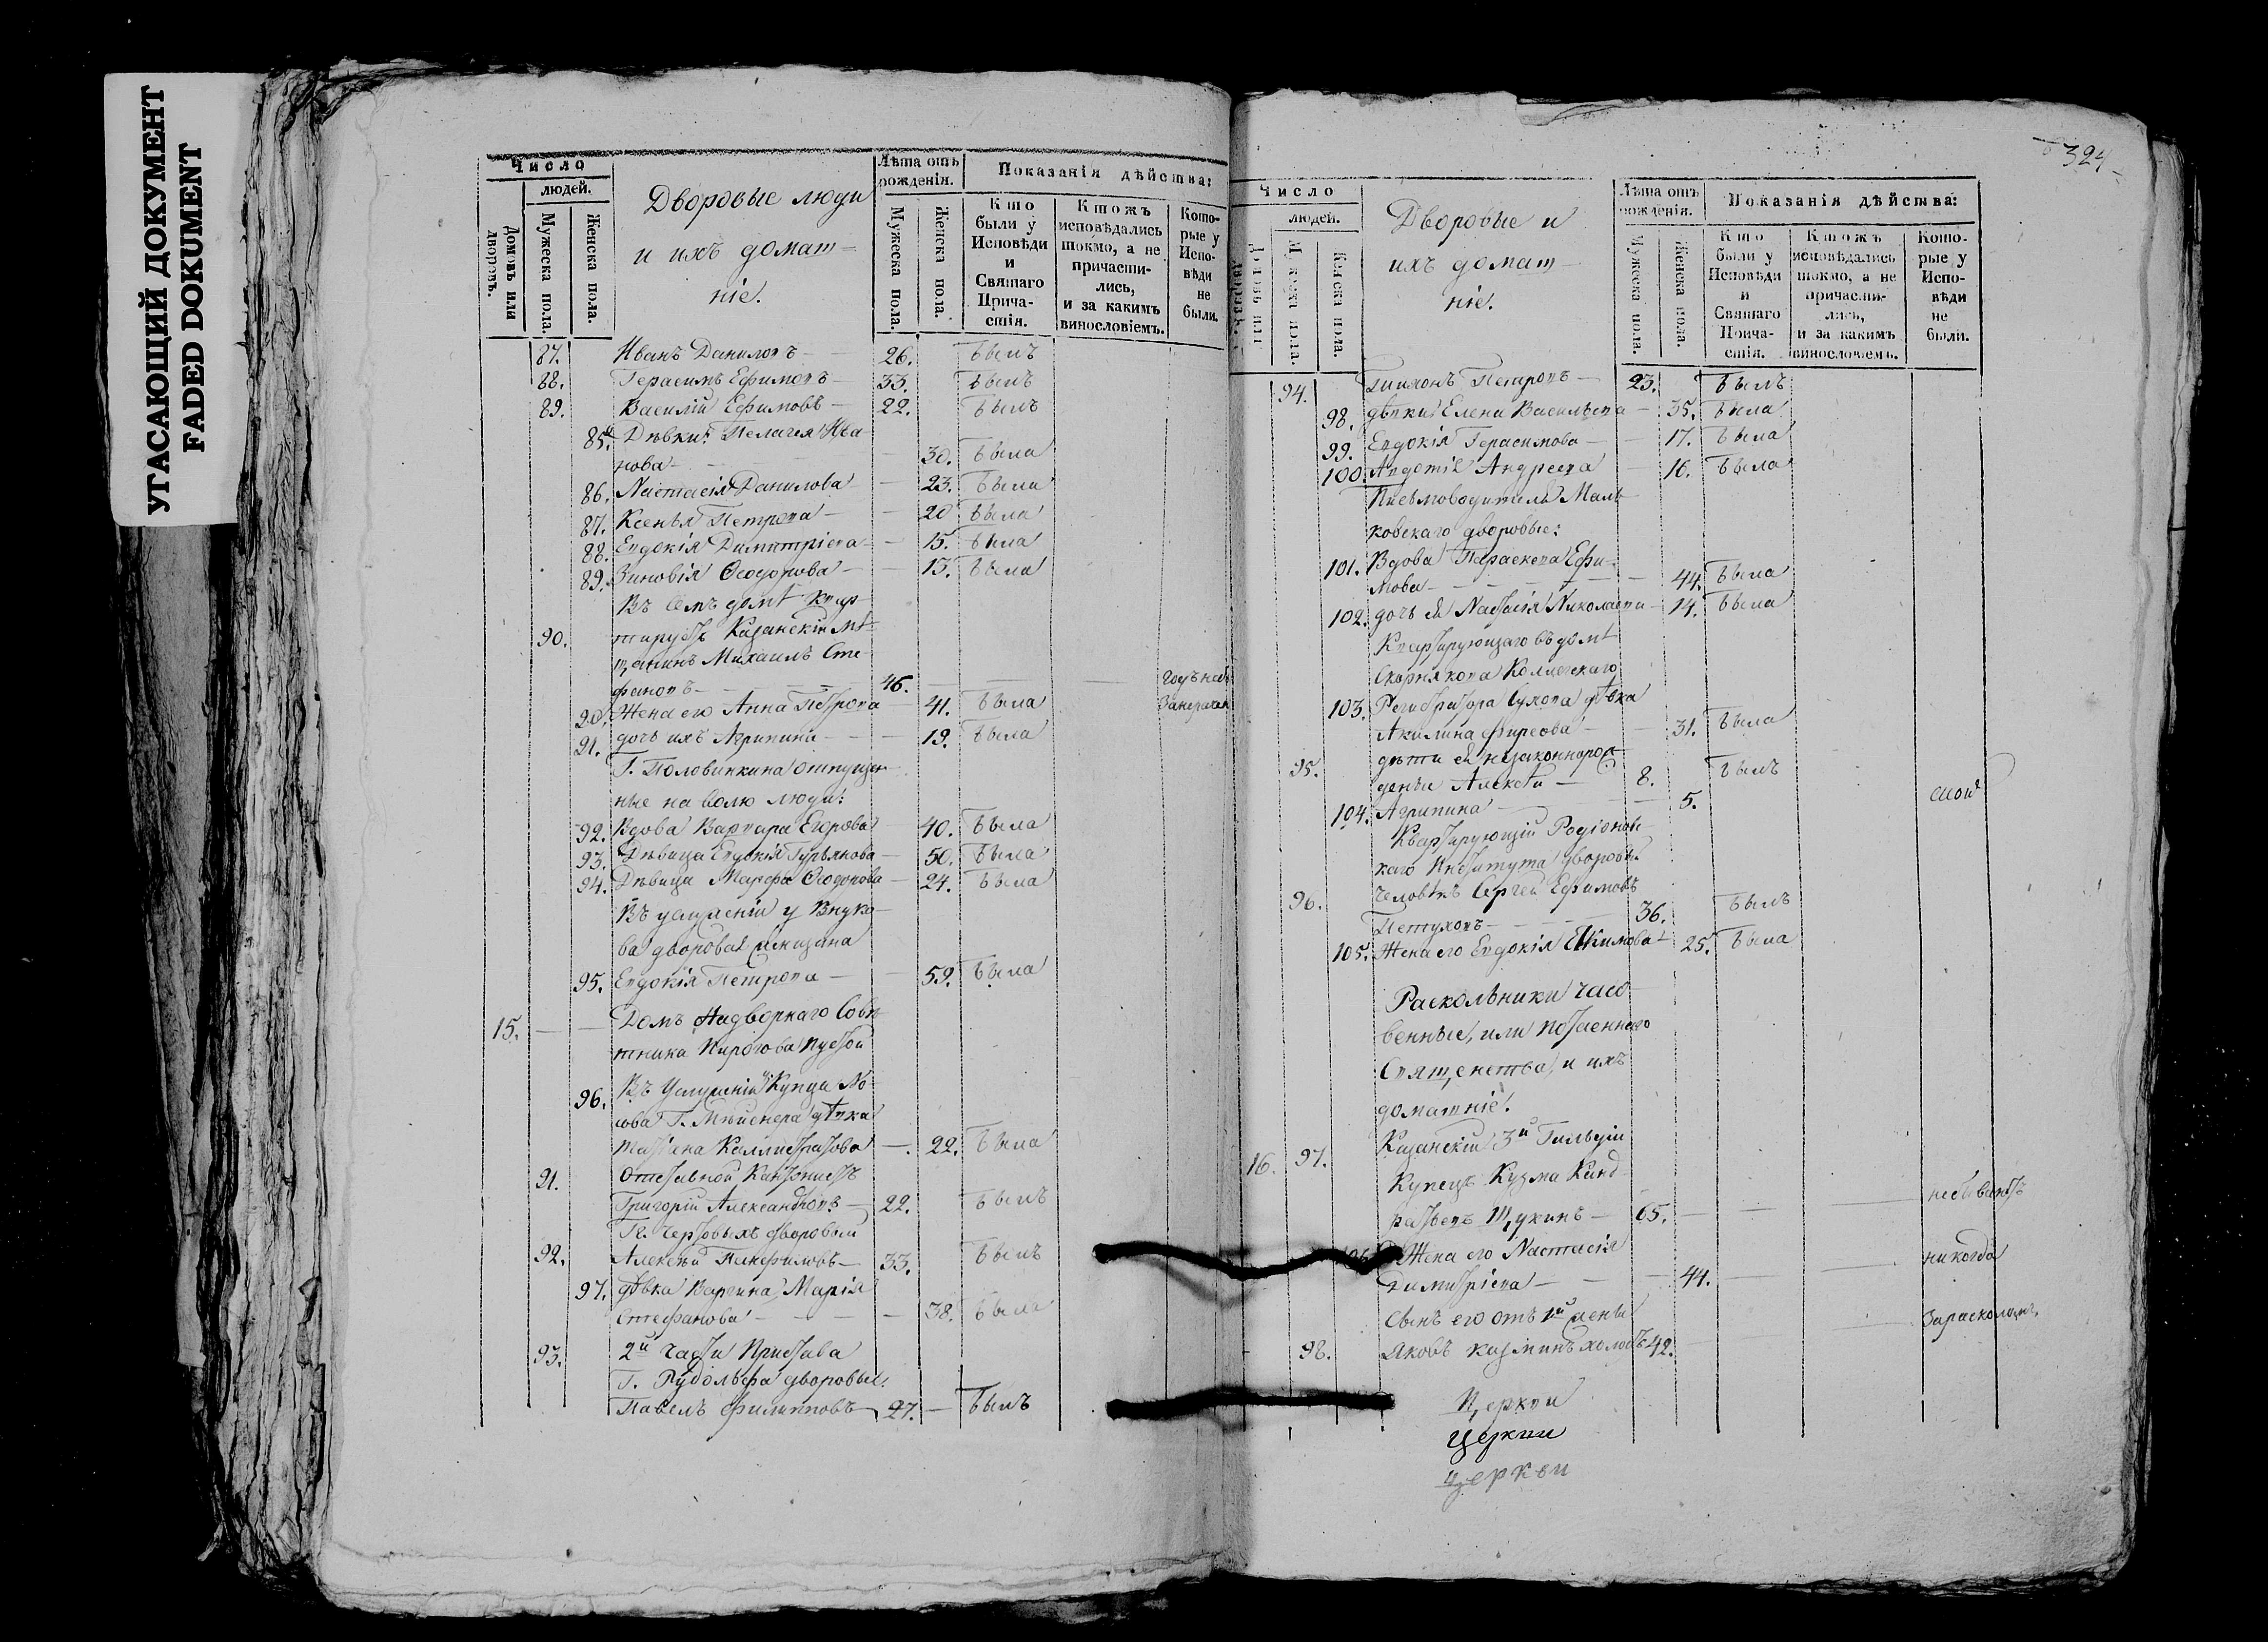 УГАСАЮЩИЙ ДОКУМЕНТ
FADED DOKUMENT
Число
людей.
Домовъ или дворовъ.
Мужеска пола.
Женска пола.
Дворовые люди
и ихъ домаш-
ніе.
Лѣта отъ рожденія.
Мужеска пола.
Женска пола.
Показанія дѣйства:
Кто были у Исповѣди и Святаго Прича-стія.
Ктожъ исповѣдались токмо, а не причасти-лись, и за какимъ винословіемъ.
Кото-рые у Испо-вѣди не были.
87. Иванъ Даниловъ 26. былъ
88. Герасимъ Ефимовъ 33. былъ
89. Василій Ефимовъ 22. былъ
85. Дѣвки: Пелагея Ива-
нова 30. была
86. Настасія Данилова 23. была
87. Ксенья Петрова 20 была
88. Евдокія Димитріева 15. была
89. Зиновія Ѳеодорова 13. была
Въ семъ домѣ квар-
90. тируетъ Казанскій мѣ-
щанинъ Михаилъ Сте-
фановъ 46.
90. Жена его Анна Петрова 41. была
91. дочь ихъ Агрипина 19. была
Г. Половинкина отпущен-
ные на волю люди:
92. Вдова Варвара Егорова 40. была
93. Дѣвица Евдокія Гурьянова 50. была
94. Дѣвица Марфа Ѳеодорова 24. была
Въ услуженіи у Внуко-
ва дворовая женщина
95. Евдокія Петрова 59. была
15. Домъ Надворнаго Совѣ-
тника Пирогова пустой
96. Въ услуженіи Купца Но-
сова Г. дѣвка
Татіана Каллистратова 22. была
91. Отставной Кантонистъ
Григорій Александровъ 22. былъ
Гг. Чертовыхъ дворовый
92. Алексѣй Панфиловъ 33. былъ
97. дѣвка Варгина Марія
Стефанова 38. была
93. 2й части Пристава
Г. Рудольфа дворовые:
Павелъ Филипповъ 27. былъ
324
Число
людей.
Женска пола.
Дворовые и
ихъ домаш-
ніе.
Лѣта отъ рожденія.
Мужеска пола.
Женска пола.
Показанія дѣйства:
Кто были у Исповѣди и Святаго Прича-стія.
Ктожъ исповѣдались токмо, а не причасти-лись, и за какимъ винословіемъ.
Кото-рые у Испо-вѣди не были.
94. Тихонъ Петровъ 23. былъ
98. дѣвки: Елена Васильева 35. была
99. Евдокія Герасимова 17. была
100. Авдотія Андреева 16. была
Писмоводителя Маль-
ковскаго дворовые:
101. Вдова Параскева Ефи-
мова 44. была
102. дочь ея Настасія Николаева 14. была
Квартирующаго въ домѣ
Скорнякова Коллежскаго
103. Регистратора Сухова дѣвка
Акилина Фирсова 31. была
95. дѣти ея незаконнорож-
денные Алексѣй 8. былъ
104. Агрипина 5.
Квартирующій Родіонов-
каго Института дворовый
96. человѣкъ Сергей Ефимовъ
Петуховъ 36. былъ
105. Жена его Евдокія Екимова 25. была
Раскольники часо-
венные, или потаеннаго
Священства, и ихъ
домашніе.
Казанскій 3й Гильдіи
16. 97. Купецъ Кузма Конд-
ратьевъ Щукинъ 65. небываютъ
106. Жена его Настасія никогда
Димитріева 44.
Сынъ его отъ 1й жены За расколомъ
98. Яковъ Казминъ холостъ 42.
Церкви
Церкви
церкви